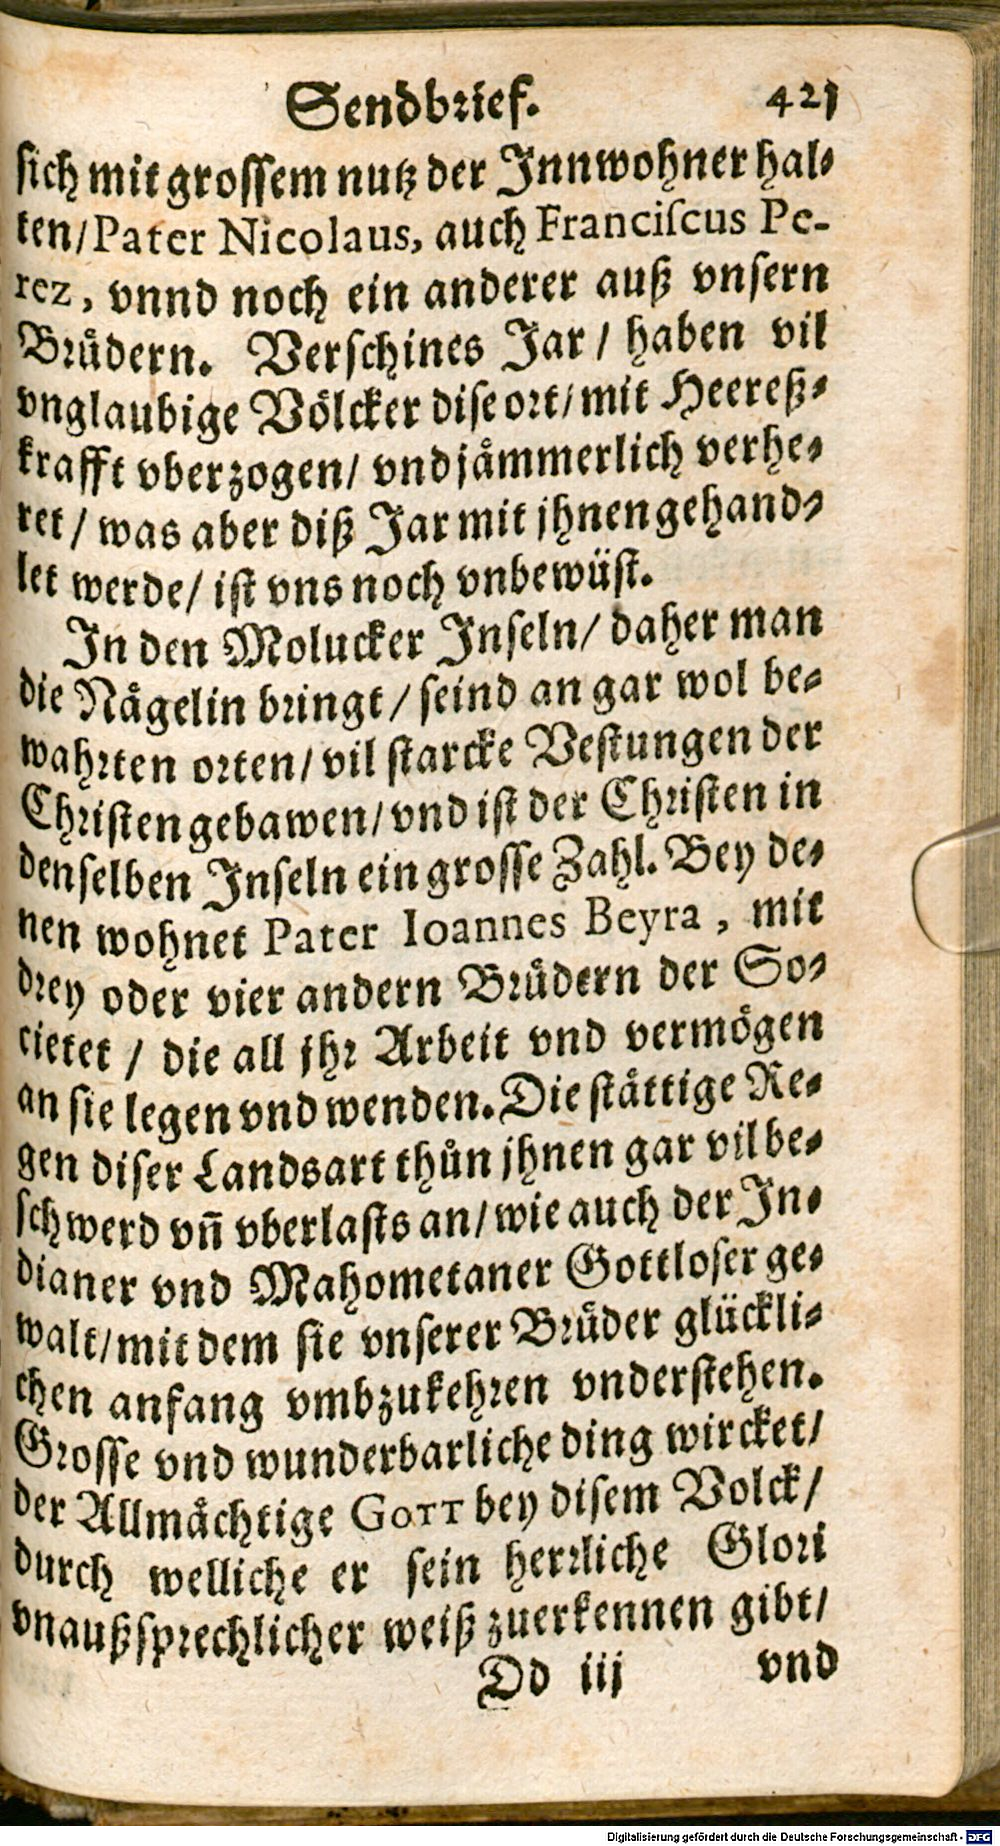 Sendbrief. 421
sich mit grossem nutz der Innwohner hal-
ten/ Pater Nicolaus, auch Franciscus Pe-
rez, vnnd noch ein anderer auß vnsern
Bruͤdern. Verschines Jar/ haben vil
vnglaubige Voͤlcker dise ort/ mit Heereß-
krafft vberzogen/ vnd jaͤmmerlich verhe-
ret/ was aber diß Jar mit jhnen gehand-
let werde/ ist vns noch vnbewüst.
In den Molucker Inseln/ daher man
die Naͤgelin bringt/ seind an gar wol be-
wahrten orten/ vil starcke Vestungen der
Christen gebawen/ vnd ist der Christen in
denselben Inseln ein grosse Zahl. Bey de-
nen wohnet Pater Ioannes Beyra, mit
drey oder vier andern Bruͤdern der So-
cietet/ die all jhr Arbeit vnd vermoͤgen
an sie legen vnd wenden. Die staͤttige Re-
gen diser Landsart thuͤn jhnen gar vil be-
schwerd vn̄ vberlasts an/ wie auch der In-
dianer vnd Mahometaner Gottloser ge-
walt/ mit dem sie vnserer Bruͤder glückli-
chen anfang vmbzukehren vnderstehen.
Grosse vnd wunderbarliche ding wircket/
der Allmaͤchtige GOTT bey disem Volck/
durch welliche er sein herrliche Glori
vnaußsprechlicher weiß zuerkennen gibt/
Dd iij vnd
Digitalisierung gefördert durch die Deutsche Forschungsgemeinschaft - DFG